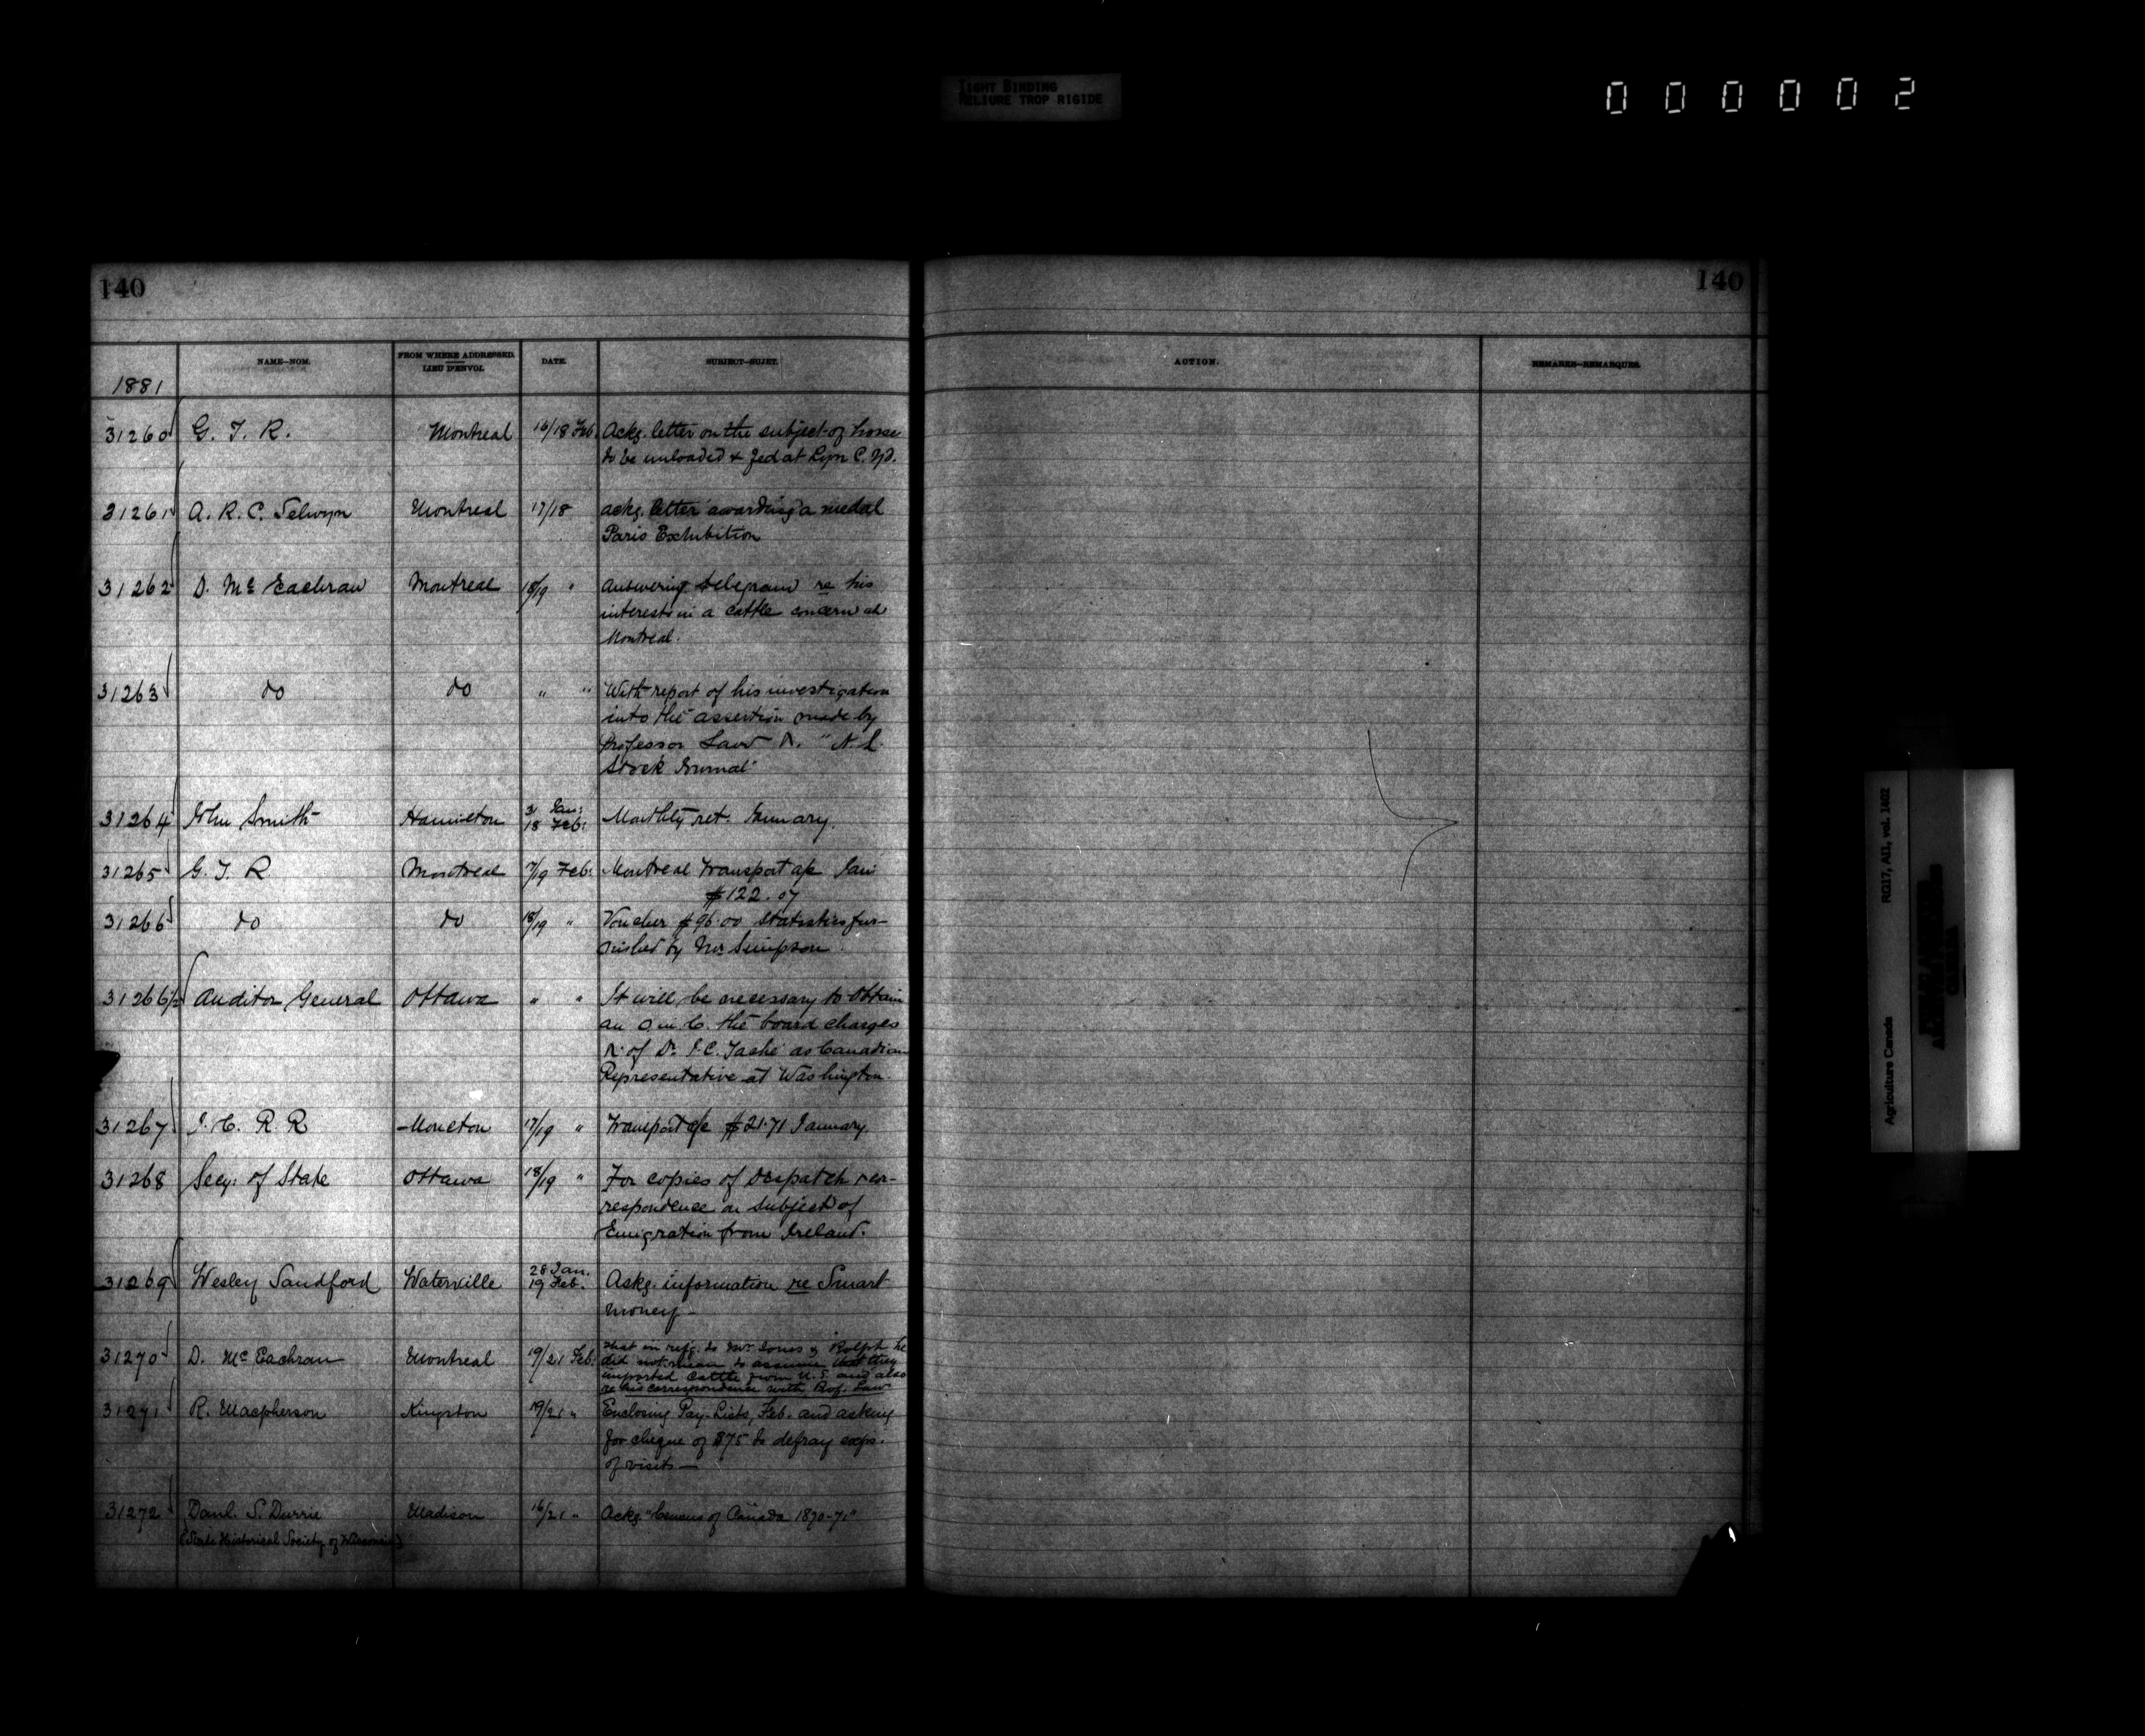 TIGHT BINDING
RELIURE TROP RIGIDE
000002
140
140
1881
NAME—NOM.
FROM WHERE ADDRESSED.
LIEU D'ENVOI.
DATE.
SUBJECT—SUJET.
ACTION.
REMARKS—REMARQUES.
31260 G. T. R. Montreal 16/18 Feb. Ackg. letter on the subject of horse
to be unloaded & fed at Lyn
31261 A. R. C. Selwyn Montreal 17/18 ackg. letter awarding a medal
Paris Exhibition
31262 D. Mc Eachran Montreal 18/19 " Answering telegram re his
interest in a cattle concern at
Montreal.
31263 do do " " With report of his investigation
into the assertion made by
Professor Law "N. L.
Stock Journal"
31264 John Smith Hamilton 31 Jan:
18 Feb: Monthly ret. January.
31265 G. T. R Montreal 7/19 Feb: Montreal Transport a/c Jan:
$122.07
31266 do do 18/19 " Voucher $96.00 Statistics fur-
nished by Mr Simpson
31266½ Auditor General Ottawa " " It will be necessary to obtain
an O in C. the board charges
of Dr. J. C. Taché as Canadian
Representative at Washington.
31267 I. C. R. R Moncton 17/19 " Transport a/c $21.71 January.
31268 Secy: of State Ottawa 18/19 " For copies of despatch cor-
respondence on subject of
Emigration from Ireland.
31269 Wesley Sandford Waterville 28 Jan.
19 Feb. Askg. information re Smart
money—
31270 D. McEachran Montreal 19/21 Feb: that in refg. to Mr. Jones & Rolph he
did not mean to assume that they
imported cattle from U.S. and also
re his correspondence with Prof. Law
31271 R. Macpherson Kingston 19/21 " Enclosing Pay-Lists, Feb. and asking
for cheque of $75 to defray exps.
of visits—
31272 Danl. S. Durrie Madison 16/21 " Ackg. "Census of Canada 1870-71"
(State Historical Society of Wisconsin)
Agriculture Canada RG17, AI1, vol. 1402